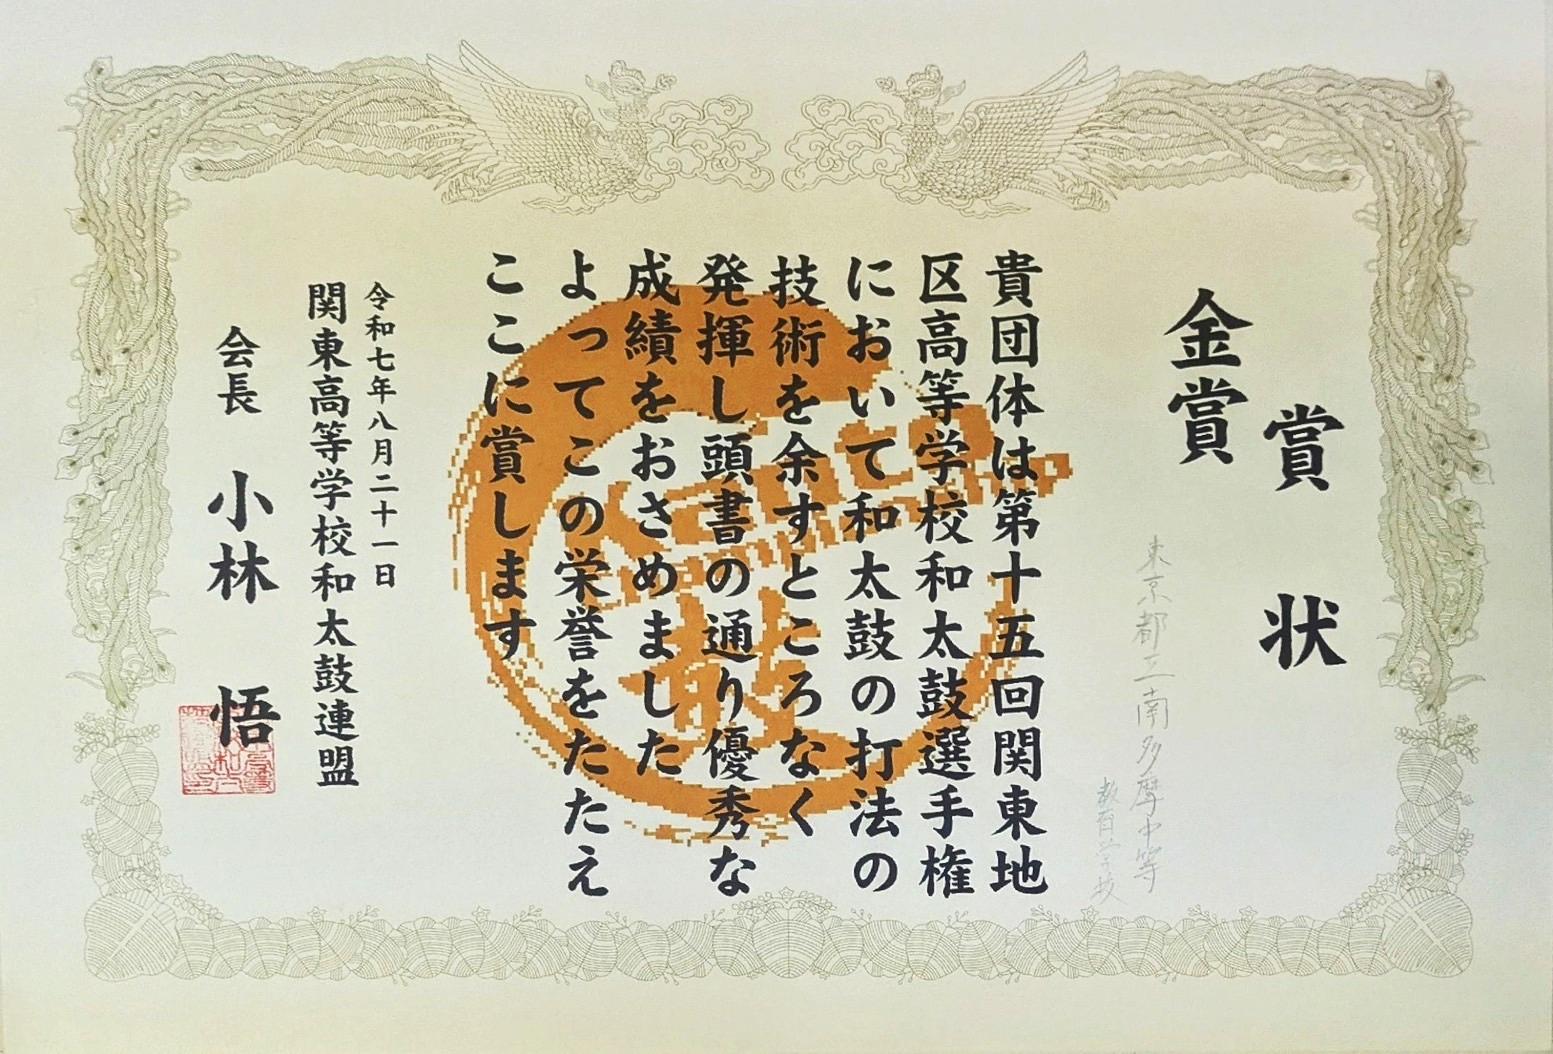 賞状
金賞
東京都立南多摩中等
教育学校
貴団体は第十五回関東地
区高等学校和太鼓選手権
において和太鼓の打法の
技術を余すところなく
発揮し頭書の通り優秀な
成績をおさめました
よってこの栄誉をたたえ
ここに賞します
令和七年八月二十一日
関東高等学校和太鼓連盟
会長 小林 悟